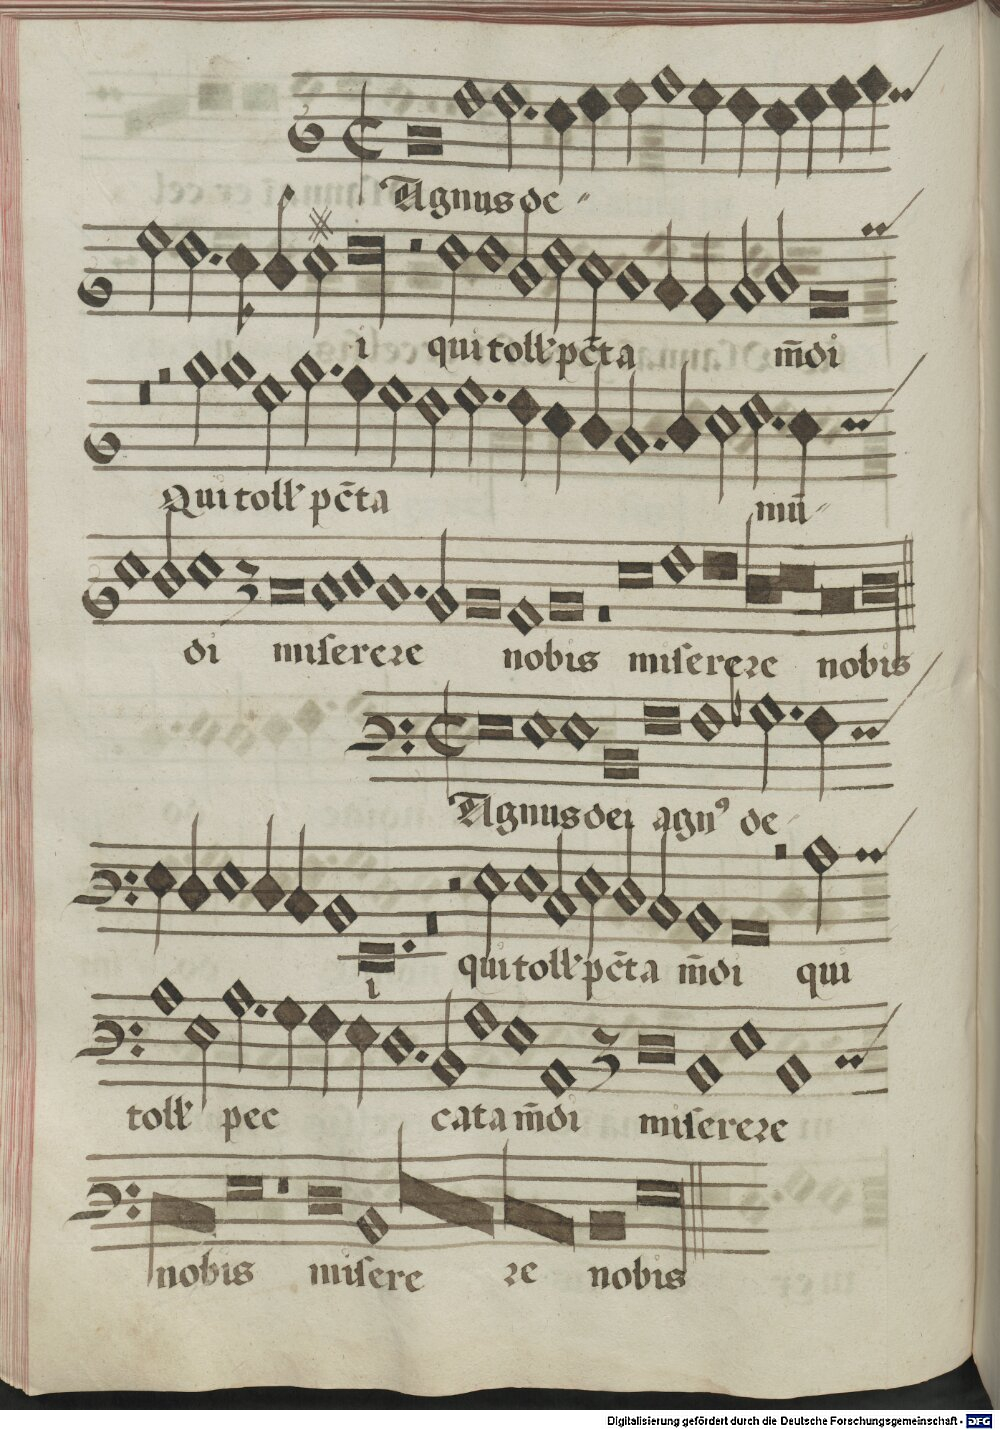 Agnus de
i qui toll' pc̄ta m̄di
Qui toll' pc̄ta mū
di miserere nobis miserere nobis
Agnus dei agn⁹ de
i qui toll' pc̄ta m̄di qui
toll' pec cata m̄di miserere
nobis misere re nobis
Digitalisierung gefördert durch die Deutsche Forschungsgemeinschaft - DFG